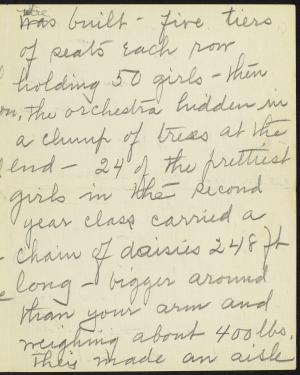 was built - five tiers
of seats each row
holding 50 girls - then
the orchestra hidden in
a clump of trees at the
end - 24 of the prettiest
girls in the second
year class carried a
chain of daisies 248 ft
long - bigger around
than your arm and
weighing about 400 lbs.
this made an aisle